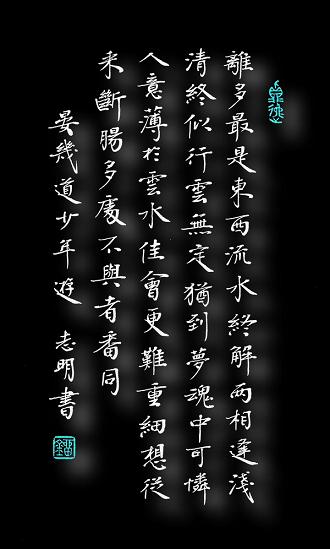 離多最是東西流水終解兩相逢淺
清終似行雲無定猶到夢魂中可憐
人意薄於雲水佳會更難重細想從
來斷腸多處不與者番同
晏幾道少年遊 志明書